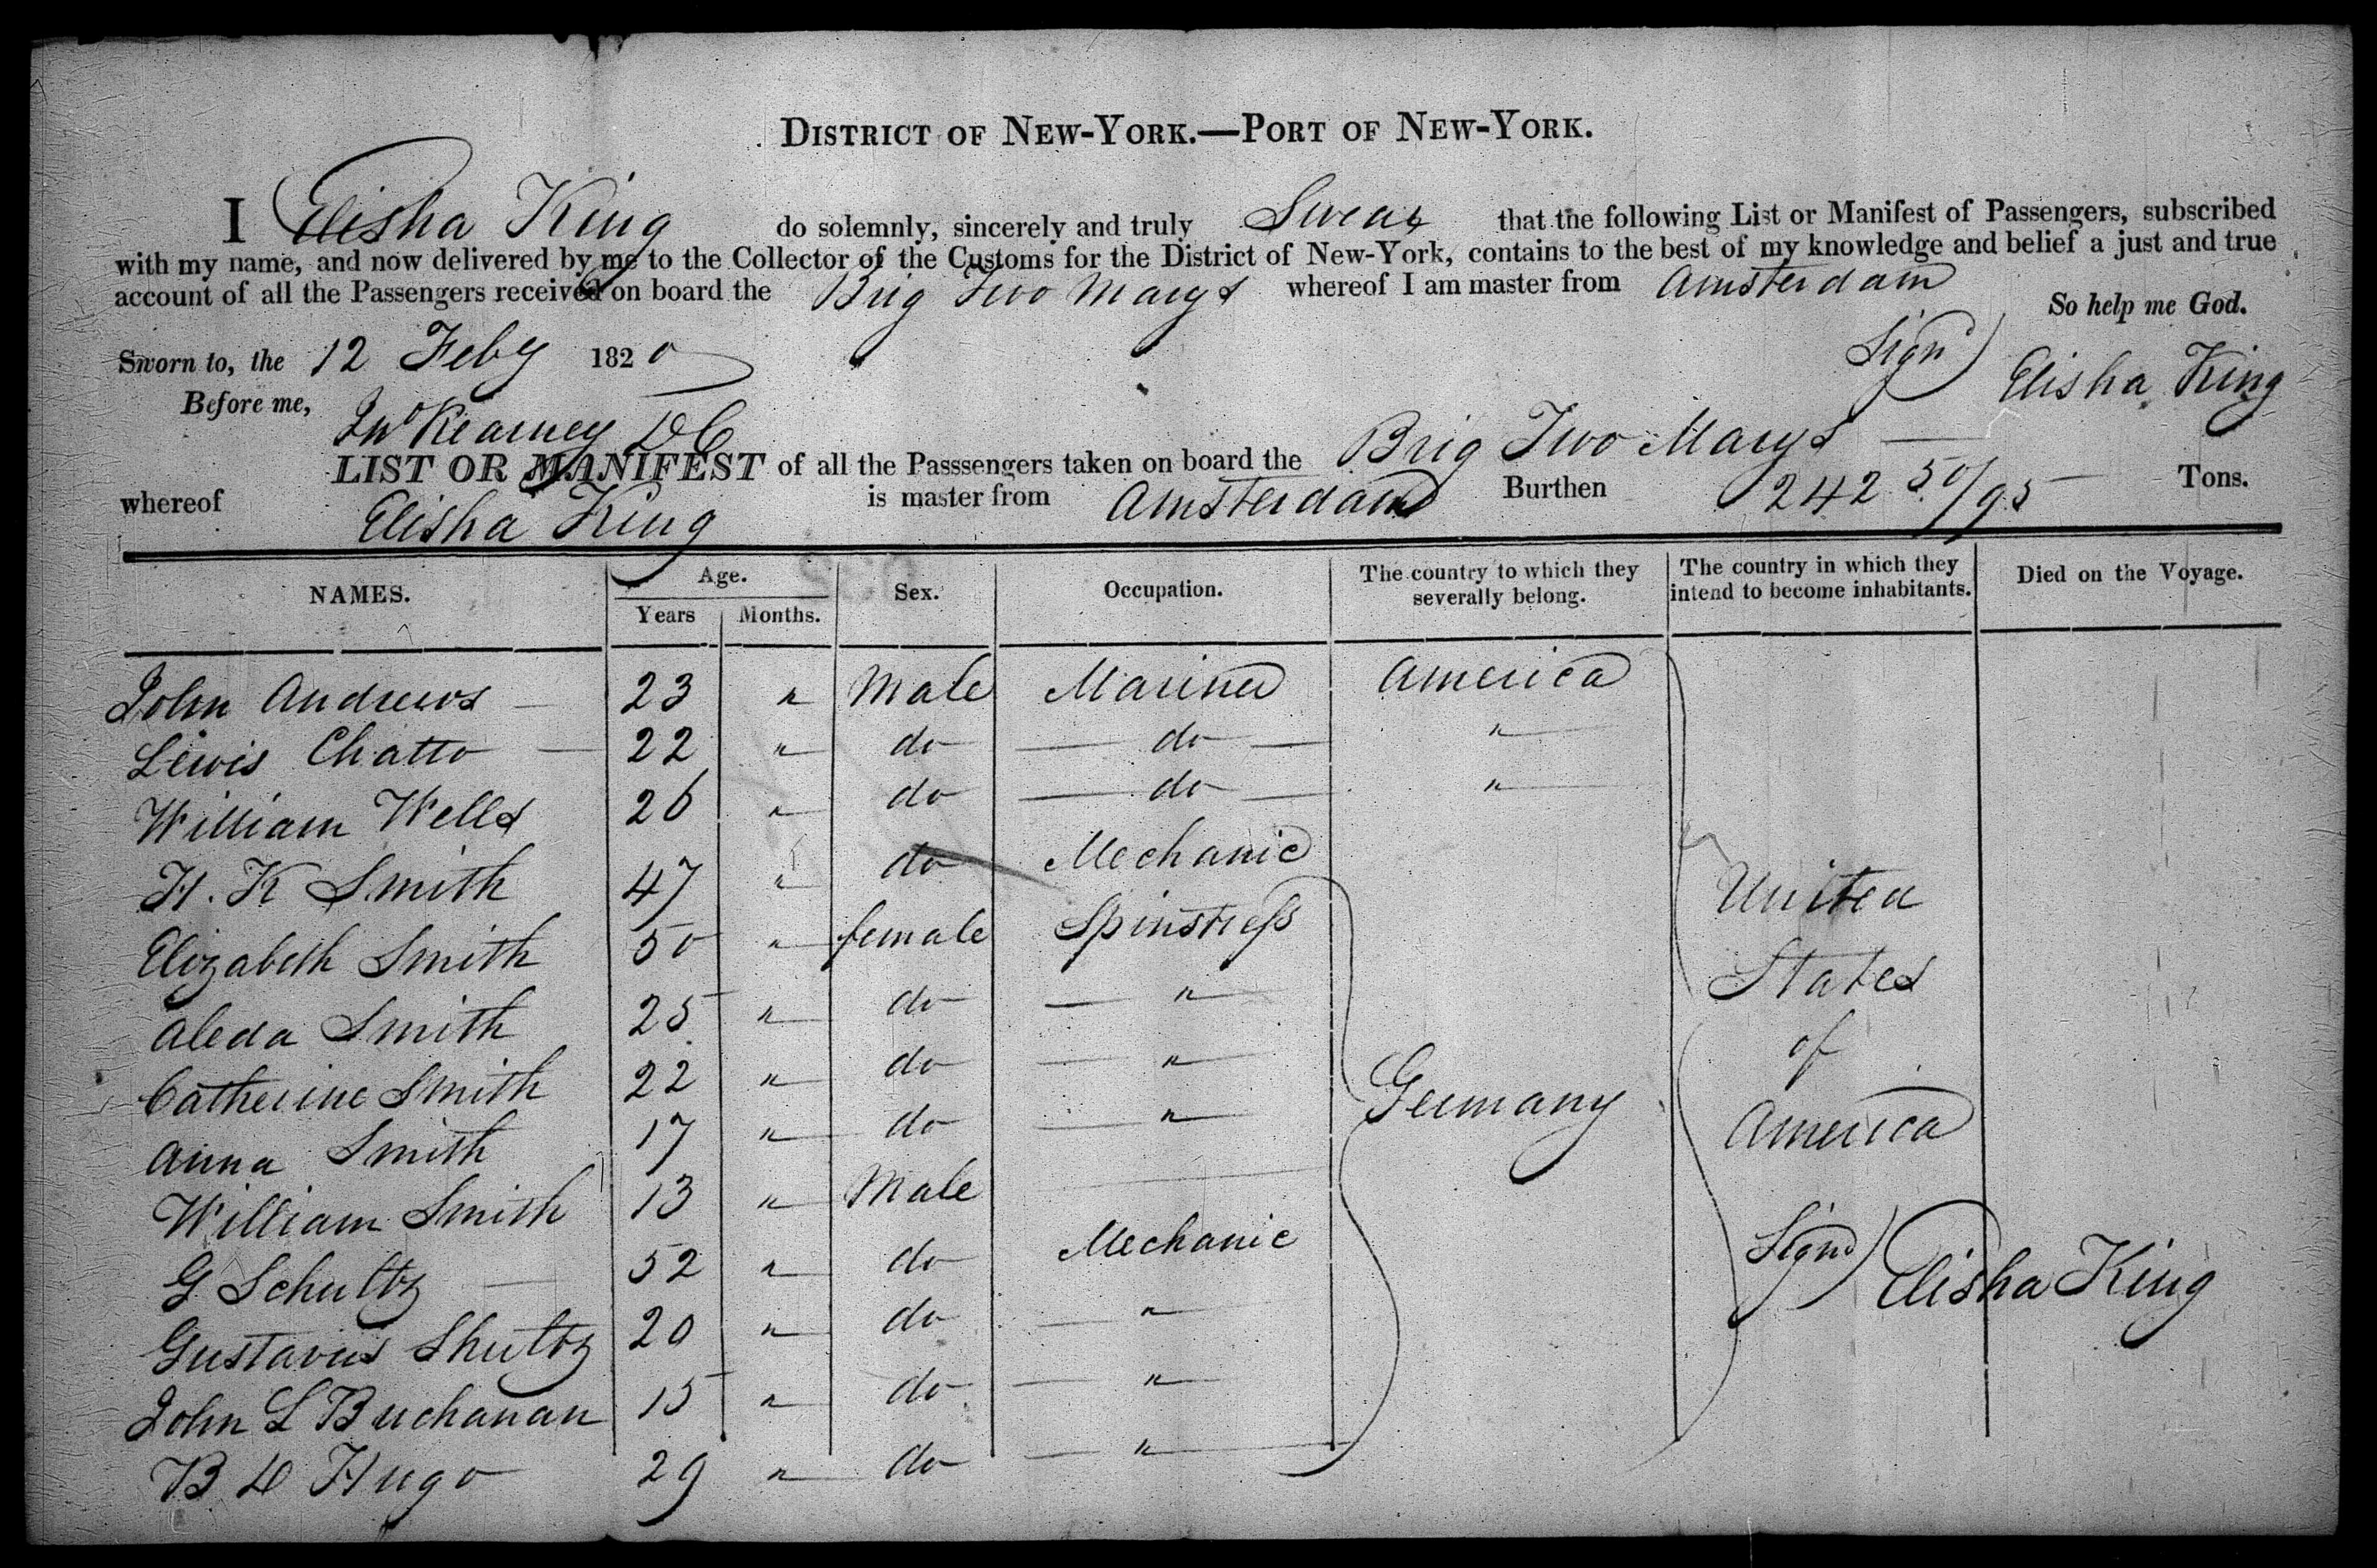 DISTRICT OF NEW-YORK.—PORT OF NEW-YORK.
I Elisha King do solemnly, sincerely and truly Swear that the following List or Manifest of Passengers, subscribed
with my name, and now delivered by me to the Collector of the Customs for the District of New-York, contains to the best of my knowledge and belief a just and true
account of all the Passengers received on board the Brig Two Marys whereof I am master from Amsterdam
So help me God.
Sworn to, the 12 Feby 1820 Sign'd Elisha King
Before me, Jno Kearney DC
LIST OR MANIFEST of all the Passsengers taken on board the Brig Two Marys
whereof Elisha King is master from Amsterdam Burthen 242 50/95 Tons.
NAMES. Age. Years Months. Sex. Occupation. The country to which they severally belong. The country in which they intend to become inhabitants. Died on the Voyage.
John Andrews — 23 " Male Mariner America
Lewis Chatto — 22 " do — do — "
William Wells 26 " do — do — "
H. K Smith 47 " do Mechanic
Elizabeth Smith 50 " female Spinstress
Aleda Smith 25 " do — "
Catherine Smith 22 " do — "
Anna Smith 17 " do — "
William Smith 13 " Male
G Schultz — 52 " do Mechanic
Gustavus Shultz 20 " do — "
John L Buchanan 15 " do — "
B D Hugo 29 " do — "
Germany
United
States
of
America
Signd Elisha King